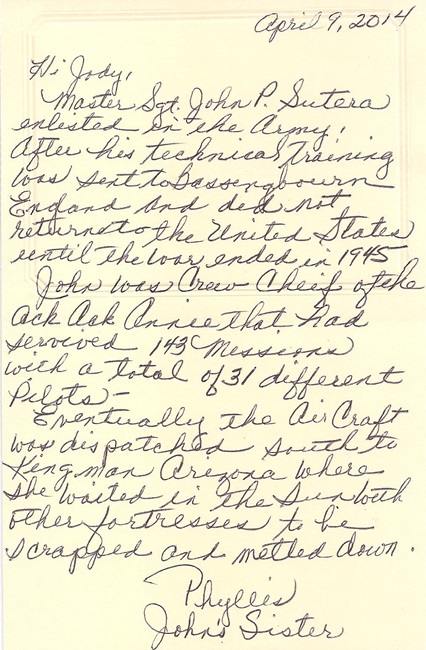 April 9, 2014
Hi Jody,
Master Sgt. John P. Sutera
enlisted in the Army,
After his technical training
was sent to Bassengbourn
England and did not
return to the United States
until the war ended in 1945
John was Crew Cheif of the
Ack Ack Annie that had
servived 143 Missions
with a total of 31 different
Pilots -
Eventually the AirCraft
was dispatched south to
Kingman Arezona where
she waited in the Sun with
other fortresses to be
scrapped and melted down.
Phyllis
John's Sister